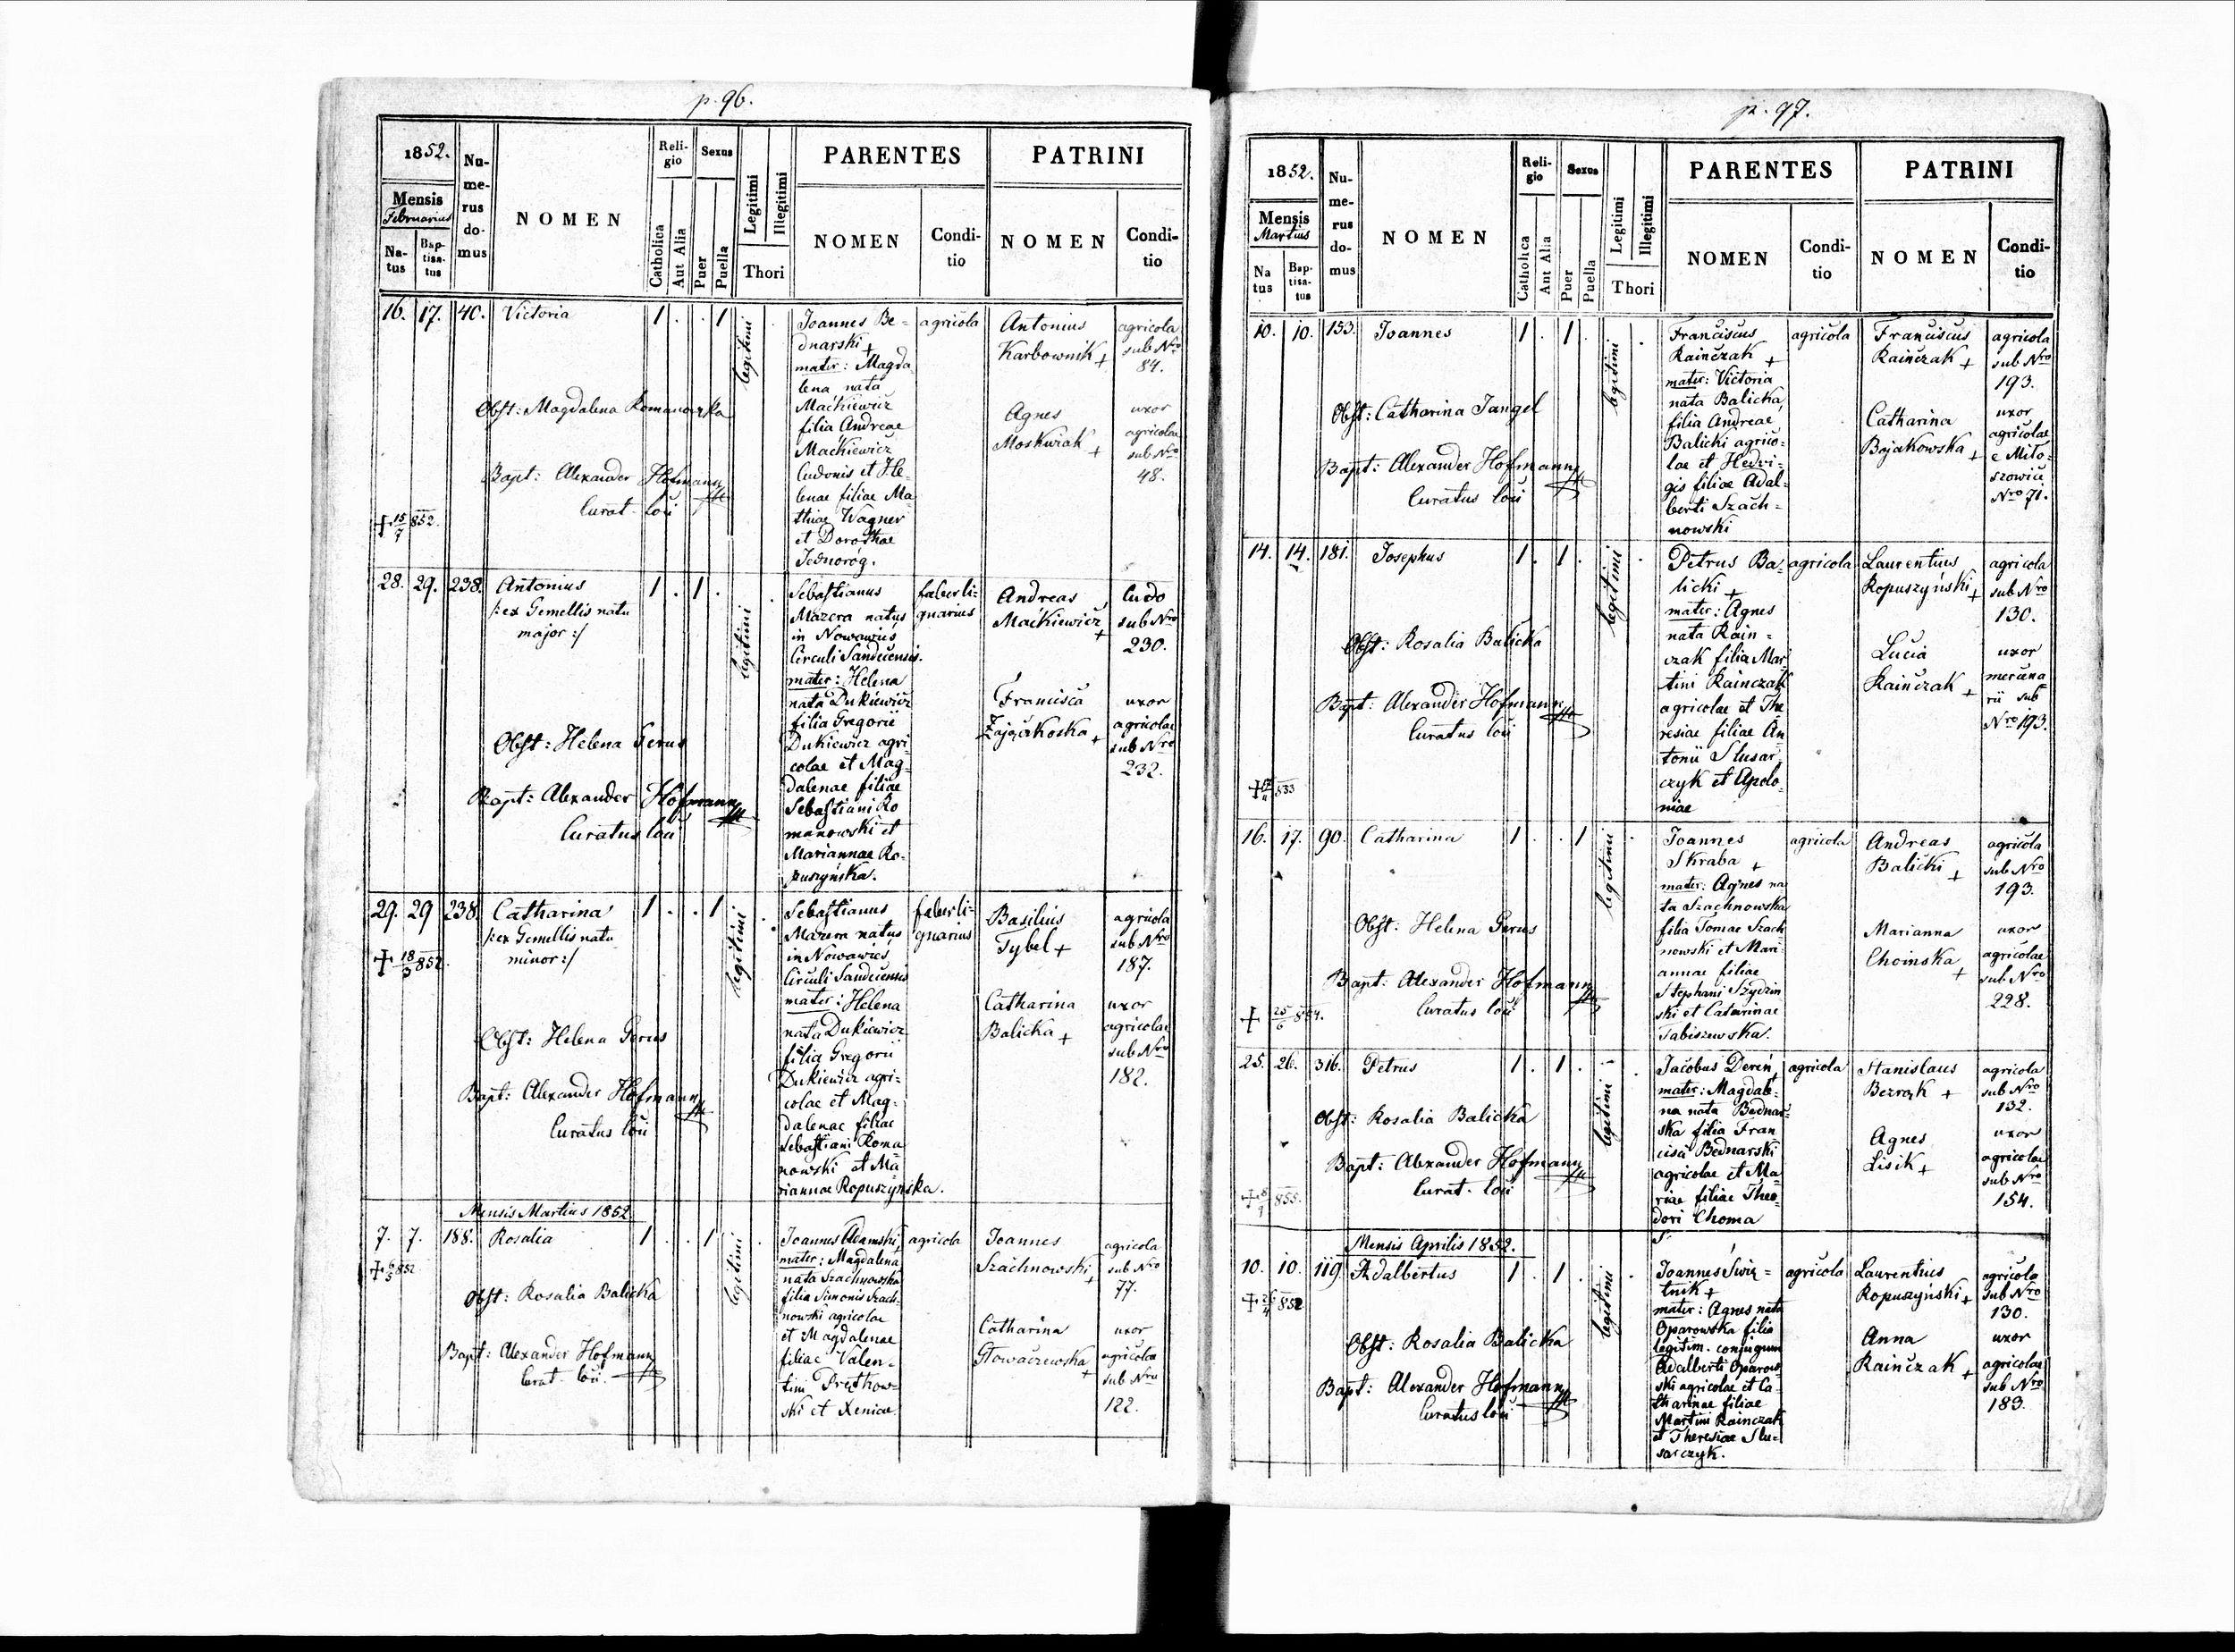 p. 96.
1852.
Mensis
Februarius
Na-
tus
Bap-
tisa-
tus
Nu-
me-
rus
do-
mus
NOMEN
Reli-
gio
Catholica
Aut Alia
Sexus
Puer
Puella
Legitimi
Illegitimi
Thori
PARENTES
NOMEN
Condi-
tio
PATRINI
NOMEN
Condi-
tio
16. 17. 40. Victoria 1 . . 1
legitimi
Obst: Magdalena Romanowska
Bapt: Alexander Hofmann
Curat. loci
+ 15/7 852.
Joannes Be=
dnarski +
mater: Magda
lena nata
Maćkiewicz
filia Andreae
Maćkiewicz
Cudonis et He-
lenae filiae Ma
thiae Wagner
et Dorothae
Jednoróg.
agricola
Antonius
Karbownik +
agricola
sub Nro
84.
Agnes
Moskwiak +
uxor
agricolae
sub Nro
48.
28. 29. 238. Antonius 1 . 1 .
/: ex Gemellis natu
major :/
legitimi
Obst: Helena Gerus
Bapt: Alexander Hofmann
Curatus loci
Sebastianus
Mazera natus
in Nowawieś
Circuli Sandecensis.
mater: Helena
nata Dukiewicz
filia Gregorii
Dukiewicz agri-
colae et Mag-
dalenae filiae
Sebastiani Ro
manowski et
Mariannae Ro-
puszyńska.
faber li-
gnarius
Andreas
Maćkiewicz +
Cudo
sub Nro
230.
Francisca
Zajączkoska +
uxor
agricolae
sub Nro
232.
29. 29 238. Catharina 1 . . 1
/: ex Gemellis natu
minor :/
legitimi
+ 18/3 852.
Obst: Helena Gerus
Bapt: Alexander Hofmann
Curatus loci
Sebastianus
Mazera natus
in Nowawieś
Circuli Sandecensis
mater: Helena
nata Dukiewicz
filia Gregorii
Dukiewicz agri=
colae et Mag-
dalenae filiae
Sebastiani Roma
nowski et Ma
riannae Ropuszyńska.
faber li-
gnarius
Basilius
Tybel +
agricola
sub Nro
187.
Catharina
Balicka +
uxor
agricolae
sub Nro
182.
Mensis Martius 1852
7. 7. 188. Rosalia 1 . . 1
legitimi
852
Obst: Rosalia Balicka
Bapt: Alexander Hofmann
Curat. loci.
Joannes Adamski,
mater: Magdalena
nata Szachnowska
filia Simonis Szach-
nowski agricolae
et Magdalenae
filiae Valen-
tini
ski et Xeniae.
agricola
Joannes
Szachnowski +
agricola
sub Nro
77.
Catharina
Głowaczewska +
uxor
agricolae
sub Nro
122.
p. 97.
1852.
Mensis
Martius
Na
tus
Bap-
tisa-
tus
Nu-
me-
rus
do-
mus
NOMEN
Reli-
gio
Catholica
Aut Alia
Sexus
Puer
Puella
Legitimi
Illegitimi
Thori
PARENTES
NOMEN
Condi-
tio
PATRINI
NOMEN
Condi-
tio
10. 10. 153. Joannes 1 . 1 .
legitimi
Obst: Catharina Jangel
Bapt: Alexander Hofmann
Curatus loci
Franciscus
Rainczak +
mater: Victoria
nata Balicka
filia Andreae
Balicki agrico-
lae et Hedvi-
gis filiae Adal-
berti Szach-
nowski
agricola
Franciscus
Rainczak +
agricola
sub Nro
193.
Catharina
Bojakowska +
uxor
agricolae
e Miło-
szowice
Nro 71.
14. 14. 181. Josephus 1 . 1 .
legitimi
Obst: Rosalia Balicka
Bapt: Alexander Hofmann
Curatus loci
Petrus Ba-
licki +
mater: Agnes
nata Rain-
czak filia Mar
tini Rainczak
agricolae et The
resiae filiae An
tonii Slusar
czyk et Apolo-
niae
agricola
Laurentius
Ropuszyński +
agricola
sub Nro
130.
Lucia
Rainczak +
uxor
mercena
rii sub
Nro 193.
16. 17. 90. Catharina 1 . . 1
legitimi
Obst: Helena Gerus
Bapt: Alexander Hofmann
Curatus loci
+ 25/6 854.
Joannes
Skraba +
mater: Agnes na
ta Szachnowska
filia Tomae Szach
nowski et Mari-
annae filiae
Stephani Szydzin
ski et Catarinae
Tabiszewska.
agricola
Andreas
Balicki +
agricola
sub Nro
193.
Marianna
Choinska +
uxor
agricolae
sub Nro
228.
25. 26. 316. Petrus 1 . 1 .
legitimi
Obst: Rosalia Balicka
Bapt: Alexander Hofmann
Curat. loci
855.
Jacobus Dereń,
mater: Magdale-
na nata Bednar-
ska filia Fran
cisci Bednarski
agricolae et Ma-
riae filiae Theo-
dori Choma
agricola
Stanislaus
Bezrąk +
agricola
sub Nro
132.
Agnes
Lisik +
uxor
agricolae
sub Nro
154.
Mensis Aprilis 1852.
10. 10. 119. Adalbertus 1 . 1 .
legitimi
852
Obst: Rosalia Balicka
Bapt: Alexander Hofmann
Curatus loci
Joannes Swią=
tnik +
mater: Agnes nata
Oparowska filia
legitim. conjugum
Adalberti Oparow
ski agricolae et Ca
tharinae filiae
Martini Rainczak
et Theresiae Slu=
sarczyk.
agricola
Laurentius
Ropuszyński +
agricola
sub Nro
130.
Anna
Rainczak +
uxor
agricolae
sub Nro
183.